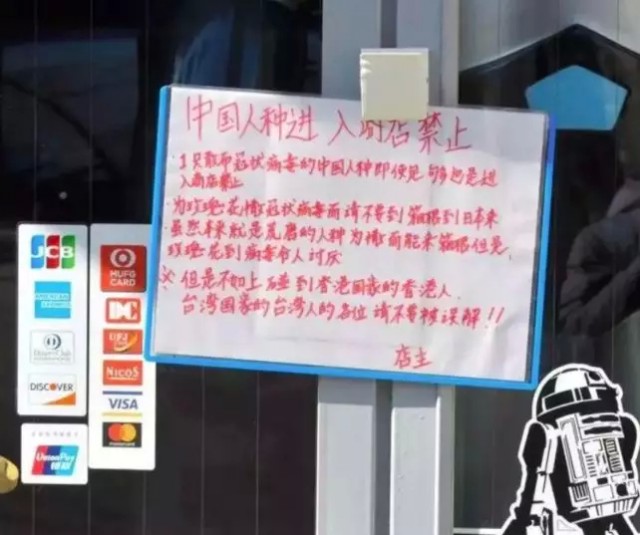 中国人种进 入商店禁止
・1只散布冠状病毒的中国人种即使见够也是进
入商店禁止
・为玫瑰花情冠状病毒而请不要到箱根到日本来
・虽然本来就是荒唐的人种为情而能来箱根但是,
玫瑰花到病毒令人讨厌
※ 但是不如上碰到香港国家的香港人.
台湾国家的台湾人的各位请不要被误解!!
店主
JCB
AMERICAN EXPRESS
Diners Club
DISCOVER
UnionPay
银联
MUFG
CARD
DC
UFJ
NICOS
VISA
mastercard